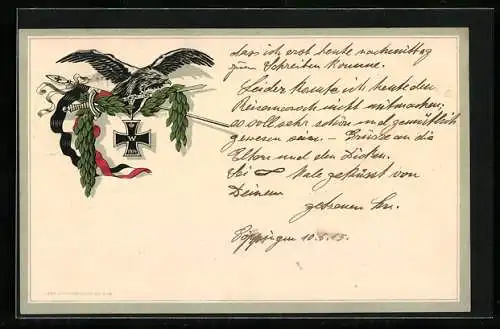 dass ich erst heute nachmittag
zum Schreiben komme.
Leider konnte ich heute den
nicht mitmachen;
es soll sehr schön und gemütlich
gewesen sein. – Grüsse an die
Eltern und den Dicken.
Sei ∞ Male geküsst von
Deinem
getreuen
Göppingen 10.5.15.